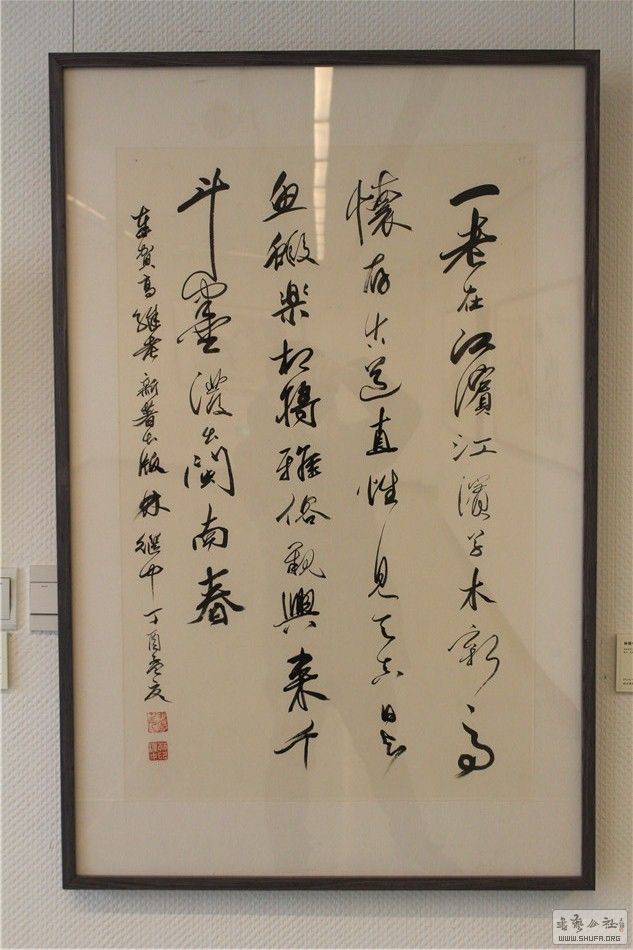 一老在江濱江濱草木新高
懷存古道直性見天真日与
魚鰕樂相將雅俗親興來千
斗墨潑出閩南春
奉賀高維老新著出版 林繼中 丁酉孟夏
WWW.SHUFA.ORG